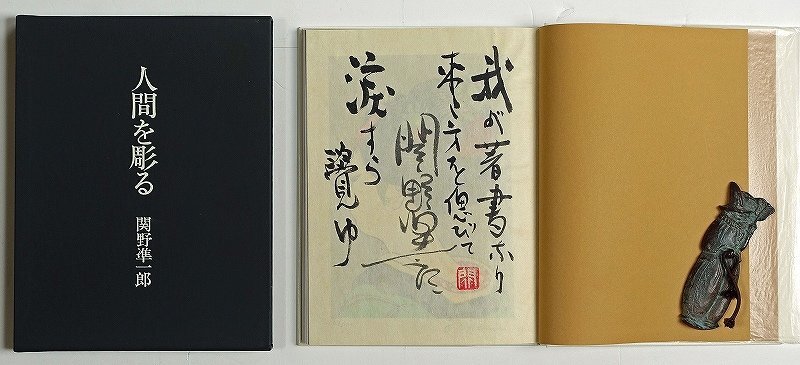 人間を彫る
関野準一郎
我が著書なり
来し方を偲びて
涙すら
覺ゆ
関野準一郎
関